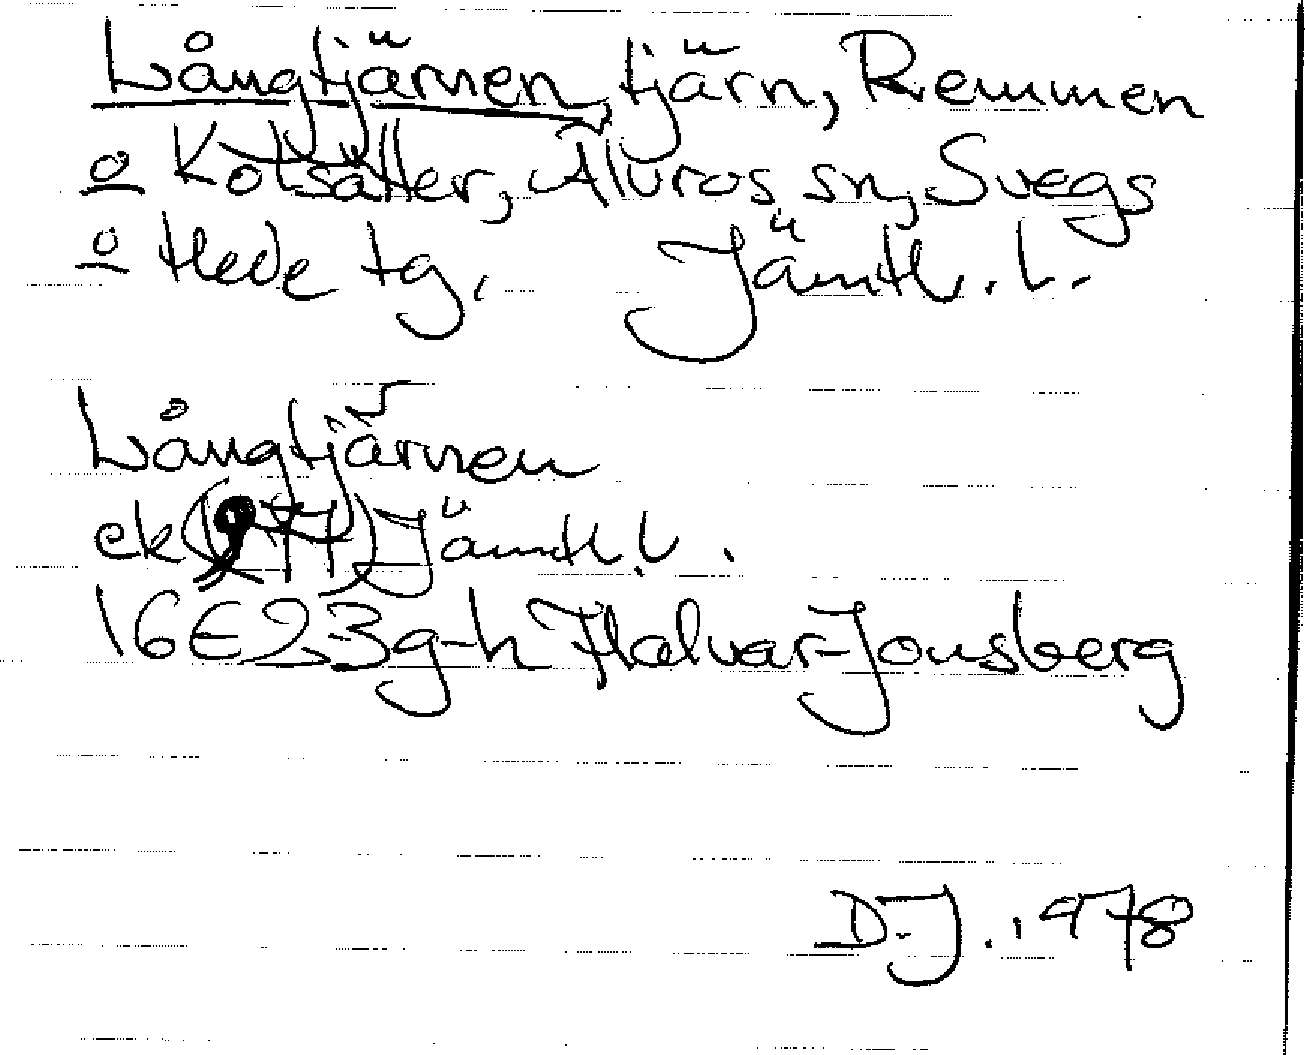 Långtjärnen, tjärn, Remmen
o Kotsätter, Älvros sn, Svegs
o Hede tg. Jämtl. l.
Långtjärnen
ek (1971) Jämtl. l.
16E23g-h Halvar-Jonsberg
D.J. 1978